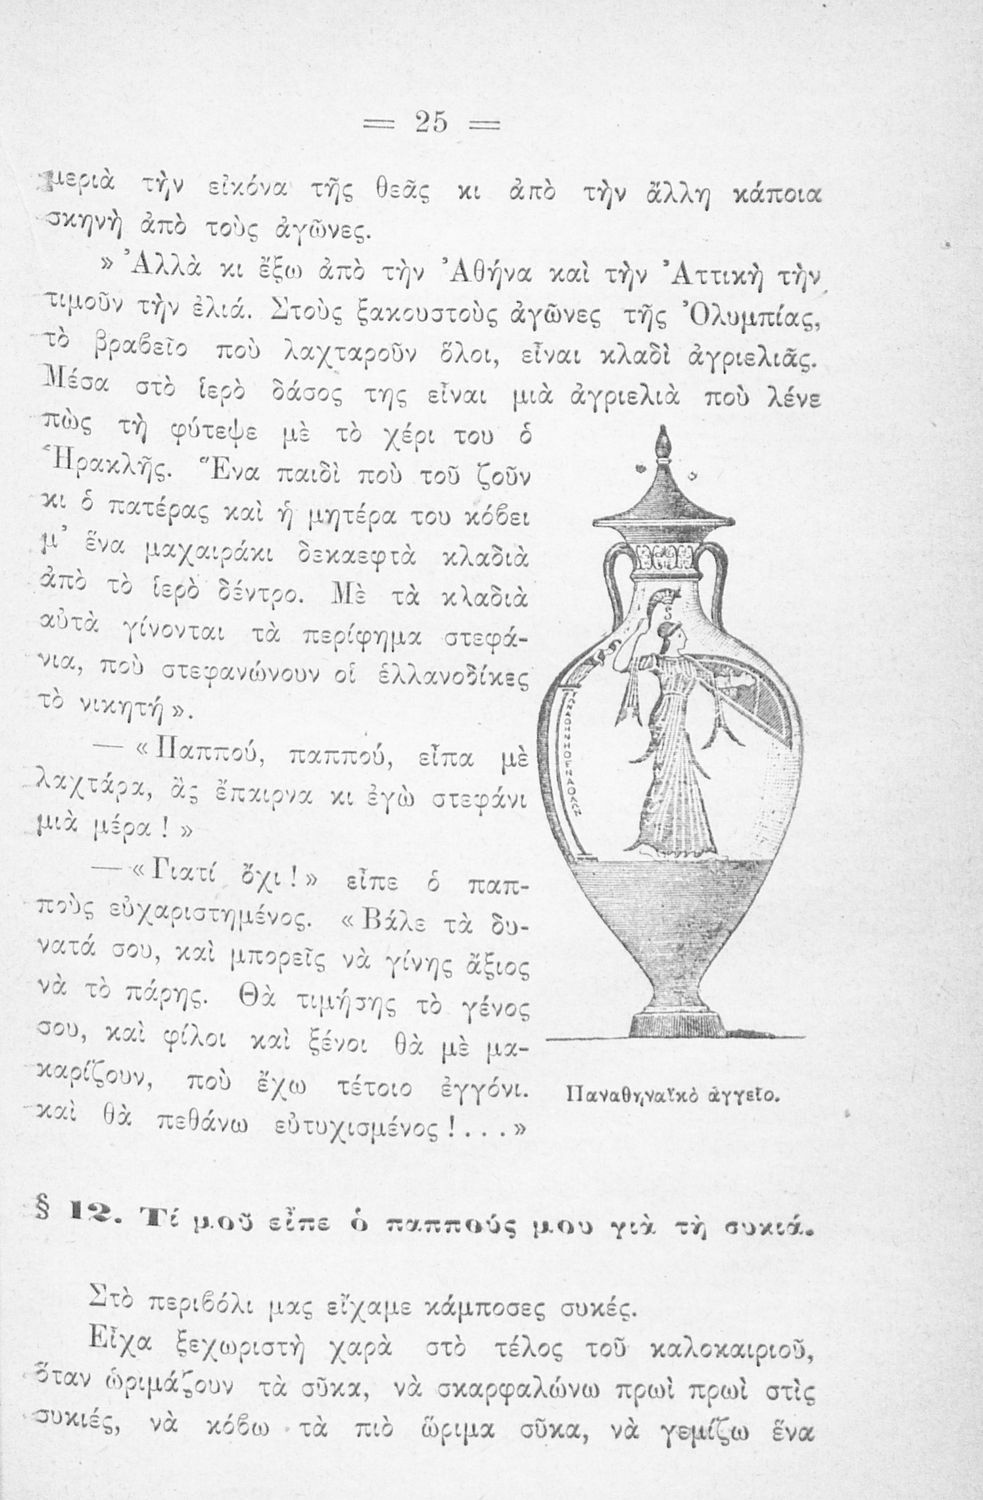 = 25 =
μεριὰ τὴν εἰκόνα τῆς θεᾶς κι ἀπὸ τὴν ἄλλη κάποια
σκηνὴ ἀπὸ τοὺς ἀγῶνες.
» Ἀλλὰ κι ἔξω ἀπὸ τὴν Ἀθήνα καὶ τὴν Ἀττικὴ τὴν
τιμοῦν τὴν ἐλιά. Στοὺς ξακουστοὺς ἀγῶνες τῆς Ὀλυμπίας,
τὸ βραβεῖο ποὺ λαχταροῦν ὅλοι, εἶναι κλαδὶ ἀγριελιᾶς.
Μέσα στὸ ἱερὸ δάσος της εἶναι μιὰ ἀγριελιὰ ποὺ λένε
πὼς τὴ φύτεψε μὲ τὸ χέρι του ὁ
Ἡρακλῆς. Ἕνα παιδὶ ποὺ τοῦ ζοῦν
κι ὁ πατέρας καὶ ἡ μητέρα του κόβει
μ᾿ ἕνα μαχαιράκι δεκαεφτὰ κλαδιὰ
ἀπὸ τὸ ἱερὸ δέντρο. Μὲ τὰ κλαδιὰ
αὐτὰ γίνονται τὰ περίφημα στεφά-
νια, ποὺ στεφανώνουν οἱ ἑλλανοδίκες
τὸ νικητή».
— «Παππού, παππού, εἶπα μὲ
λαχτάρα, ἂς ἔπαιρνα κι ἐγὼ στεφάνι
μιὰ μέρα!»
— «Γιατί ὄχι!» εἶπε ὁ παπ-
ποὺς εὐχαριστημένος. «Βάλε τὰ δυ-
νατά σου, καὶ μπορεῖς νὰ γίνης ἄξιος
νὰ τὸ πάρης. Θὰ τιμήσης τὸ γένος
σου, καὶ φίλοι καὶ ξένοι θὰ μὲ μα-
καρίζουν, ποὺ ἔχω τέτοιο ἐγγόνι.
καὶ θὰ πεθάνω εὐτυχισμένος!...»
Παναθηναϊκὸ ἀγγεῖο.
§ 12. Τί μοῦ εἶπε ὁ παππούς μου γιὰ τὴ συκιά.
Στὸ περιβόλι μας εἴχαμε κάμποσες συκές.
Εἶχα ξεχωριστὴ χαρὰ στὸ τέλος τοῦ καλοκαιριοῦ,
ὅταν ὡριμάζουν τὰ σῦκα, νὰ σκαρφαλώνω πρωὶ πρωὶ στὶς
συκιές, νὰ κόβω τὰ πιὸ ὥριμα σῦκα, νὰ γεμίζω ἕνα